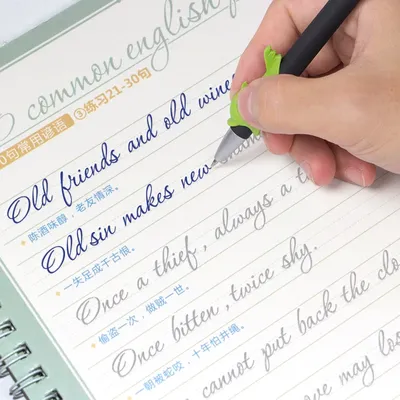 common english
0句常用谚语 ③练习21-30句
Old friends and old wines
陈酒味醇，老友情深。
Old sin makes new
一失足成千古恨。
Once a thief, always a
偷盗一次，做贼一世。
Once bitten, twice shy.
一朝被蛇咬，十年怕井绳。
cannot put back the clo
we may los